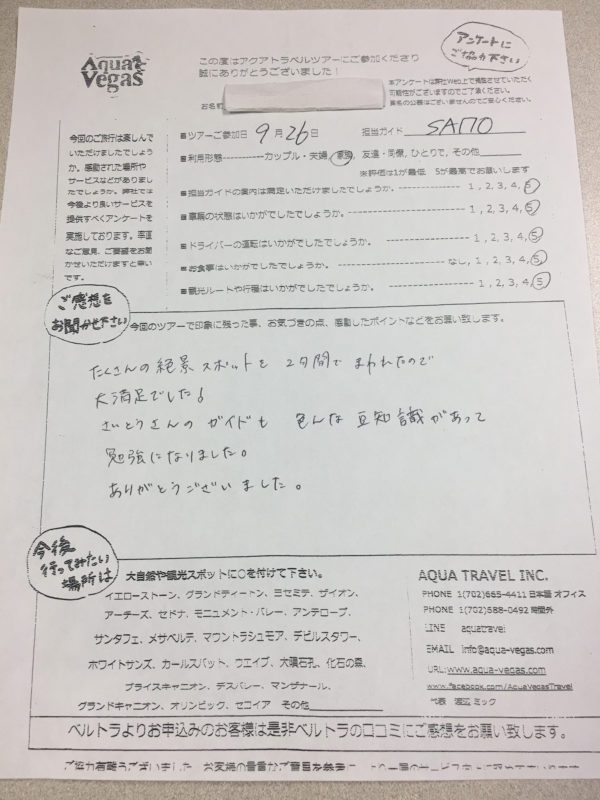 Aqua Vegas
この度はアクアトラベルツアーにご参加くださり
誠にありがとうございました！
アンケートに
ご協力下さい
本アンケートは弊社Web上で掲載させていただく
可能性がございますのでご了承ください。
実名の公表はございませんのでご安心ください。
お名前
今回のご旅行は楽しんで
いただけましたでしょう
か。感動された場所や
サービスなどがありまし
たでしょうか。弊社では
今後より良いサービスを
提供すべくアンケートを
実施しております。率直
なご意見、ご要望をお聞
かせいただけますと幸い
です。
■ツアーご参加日 9月26日 担当ガイド SAITO
■利用形態-----------カップル・夫婦、家族、友達・同僚、ひとりで、その他
※評価は1が最低 5が最高でお願いします
■担当ガイドの案内は満足いただけましたでしょうか。 1, 2, 3, 4, 5
■車輌の状態はいかがでしたでしょうか。 1, 2, 3, 4, 5
■ドライバーの運転はいかがでしたでしょうか。 1, 2, 3, 4, 5
■お食事はいかがでしたでしょうか。 なし, 1, 2, 3, 4, 5
■観光ルートや行程はいかがでしたでしょうか。 1, 2, 3, 4, 5
ご感想を
お聞かせ下さい
今回のツアーで印象に残った事、お気づきの点、感動したポイントなどをお願い致します。
たくさんの絶景スポットを 2日間で まわれたので
大満足でした！
さいとうさんの ガイドも 色んな 豆知識があって
勉強になりました。
ありがとうございました。
今後
行ってみたい
場所は
大自然や観光スポットに○を付けて下さい。
イエローストーン、グランドティートン、ヨセミテ、ザイオン、
アーチーズ、セドナ、モニュメント・バレー、アンテロープ、
サンタフェ、メサベルデ、マウントラシュモア、デビルスタワー、
ホワイトサンズ、カールスバット、ウエイブ、大隕石孔、化石の森、
ブライスキャニオン、デスバレー、マンザナール、
グランドキャニオン、オリンピック、セコイア その他
AQUA TRAVEL INC.
PHONE 1(702)665-4411 日本語 オフィス
PHONE 1(702)588-0492 時間外
LINE aquatravel
EMAIL info@aqua-vegas.com
URL:www.aqua-vegas.com
www.facebook.com/AquaVegasTravel
代表 渡辺 ミック
ベルトラよりお申込みのお客様は是非ベルトラの口コミにご感想をお願い致します。